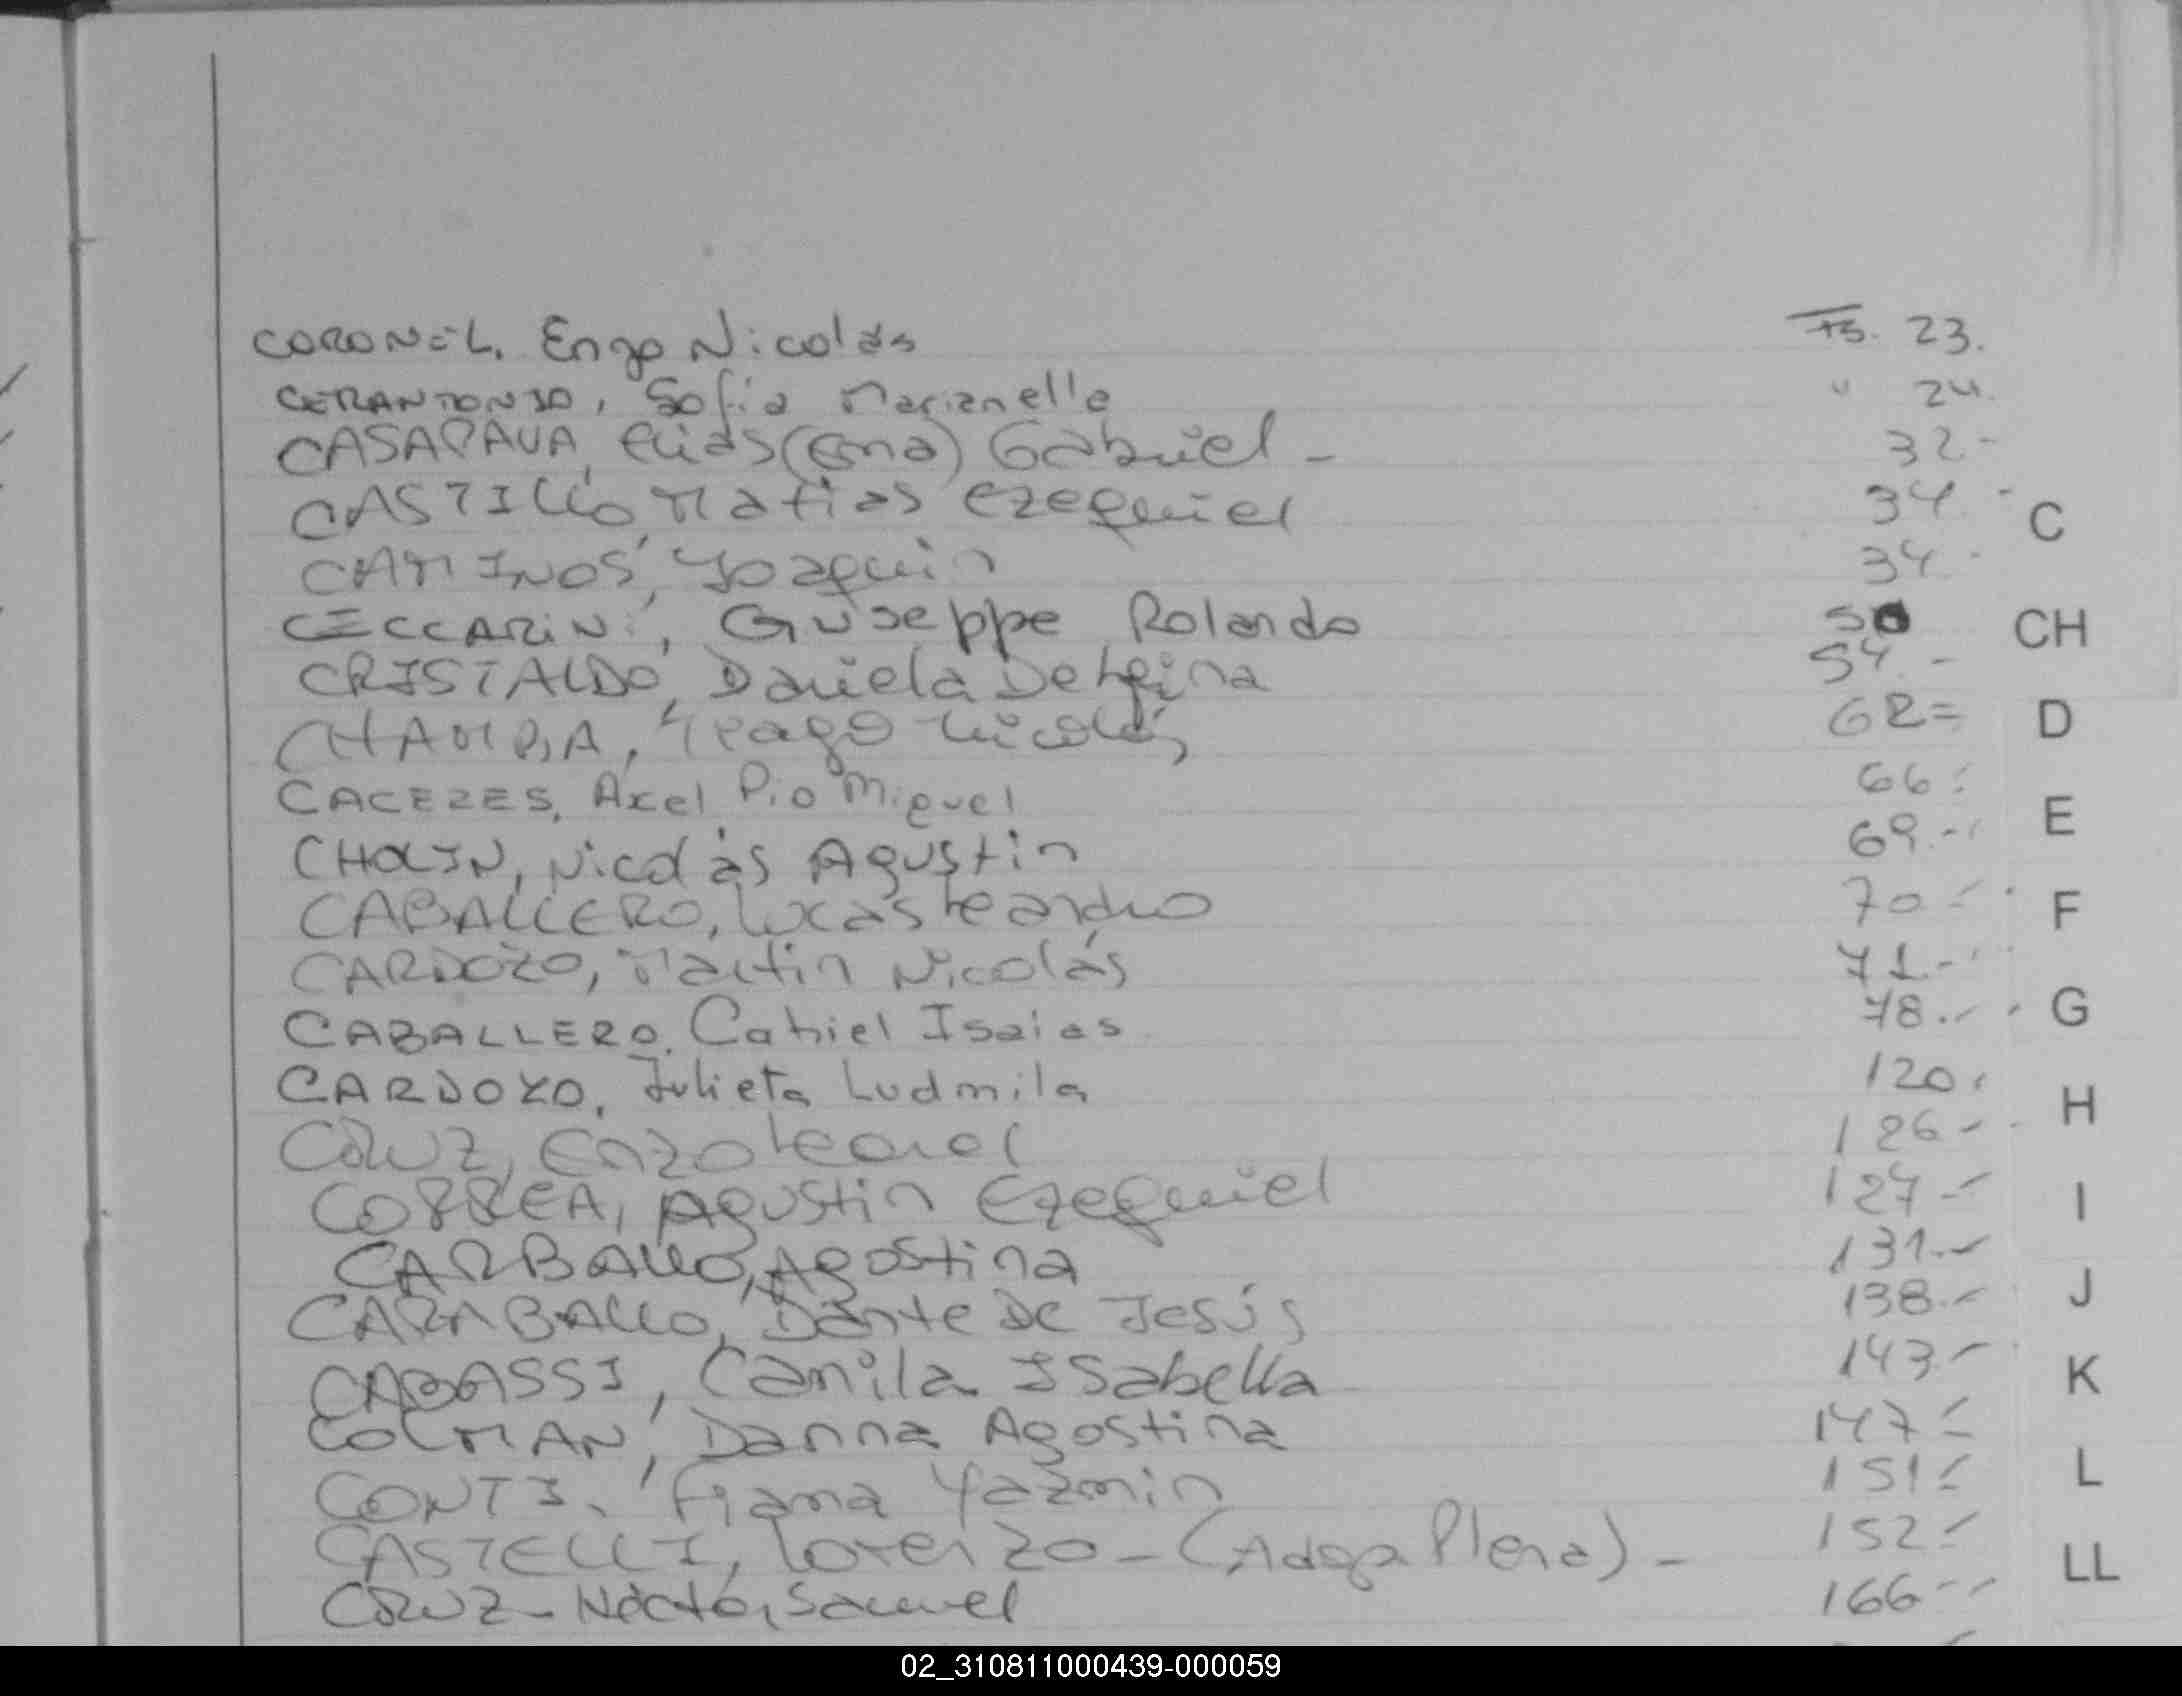 CORONEL, Enzo Nicolás Fs. 23.
CERANTONIO, Sofia Marianella " 24.
CASAPAVA, Elias (Ema) Gabriel - 32-
CASTILLO, Matias Ezequiel 34 -
CAMINOS, Joaquin 34 -
CECCARINI, Giuseppe Rolando 50
CRISTALDO, Daniela Delfina 54. -
Nicolás 62=
CACERES, Axel Pio Miguel 66.-
CHOLIN, Nicolás Agustin 69.--
CABALLERO, Lucas Leandro 70 --
CARDOZO, Martin Nicolás 71.--
CABALLERO, Cahiel Isaias 78.-
CARDOZO, Julieta Ludmila 120.
CRUZ, Enzo Leonel 126--
CORREA, Agustin Ezequiel 127--
CARBALLO, Agostina 131.-
CARABALLO, Dante De Jesús 138.-
CABASSI, Camila Isabella 143.-
COLMAN, Danna Agostina 147.-
CONTI, Fiama Yazmin 151.-
CASTELLI, Lorenzo - (Adop. Plena) - 152.-
CRUZ - Samuel 166--
C
CH
D
E
F
G
H
I
J
K
L
LL
02_310811000439-000059